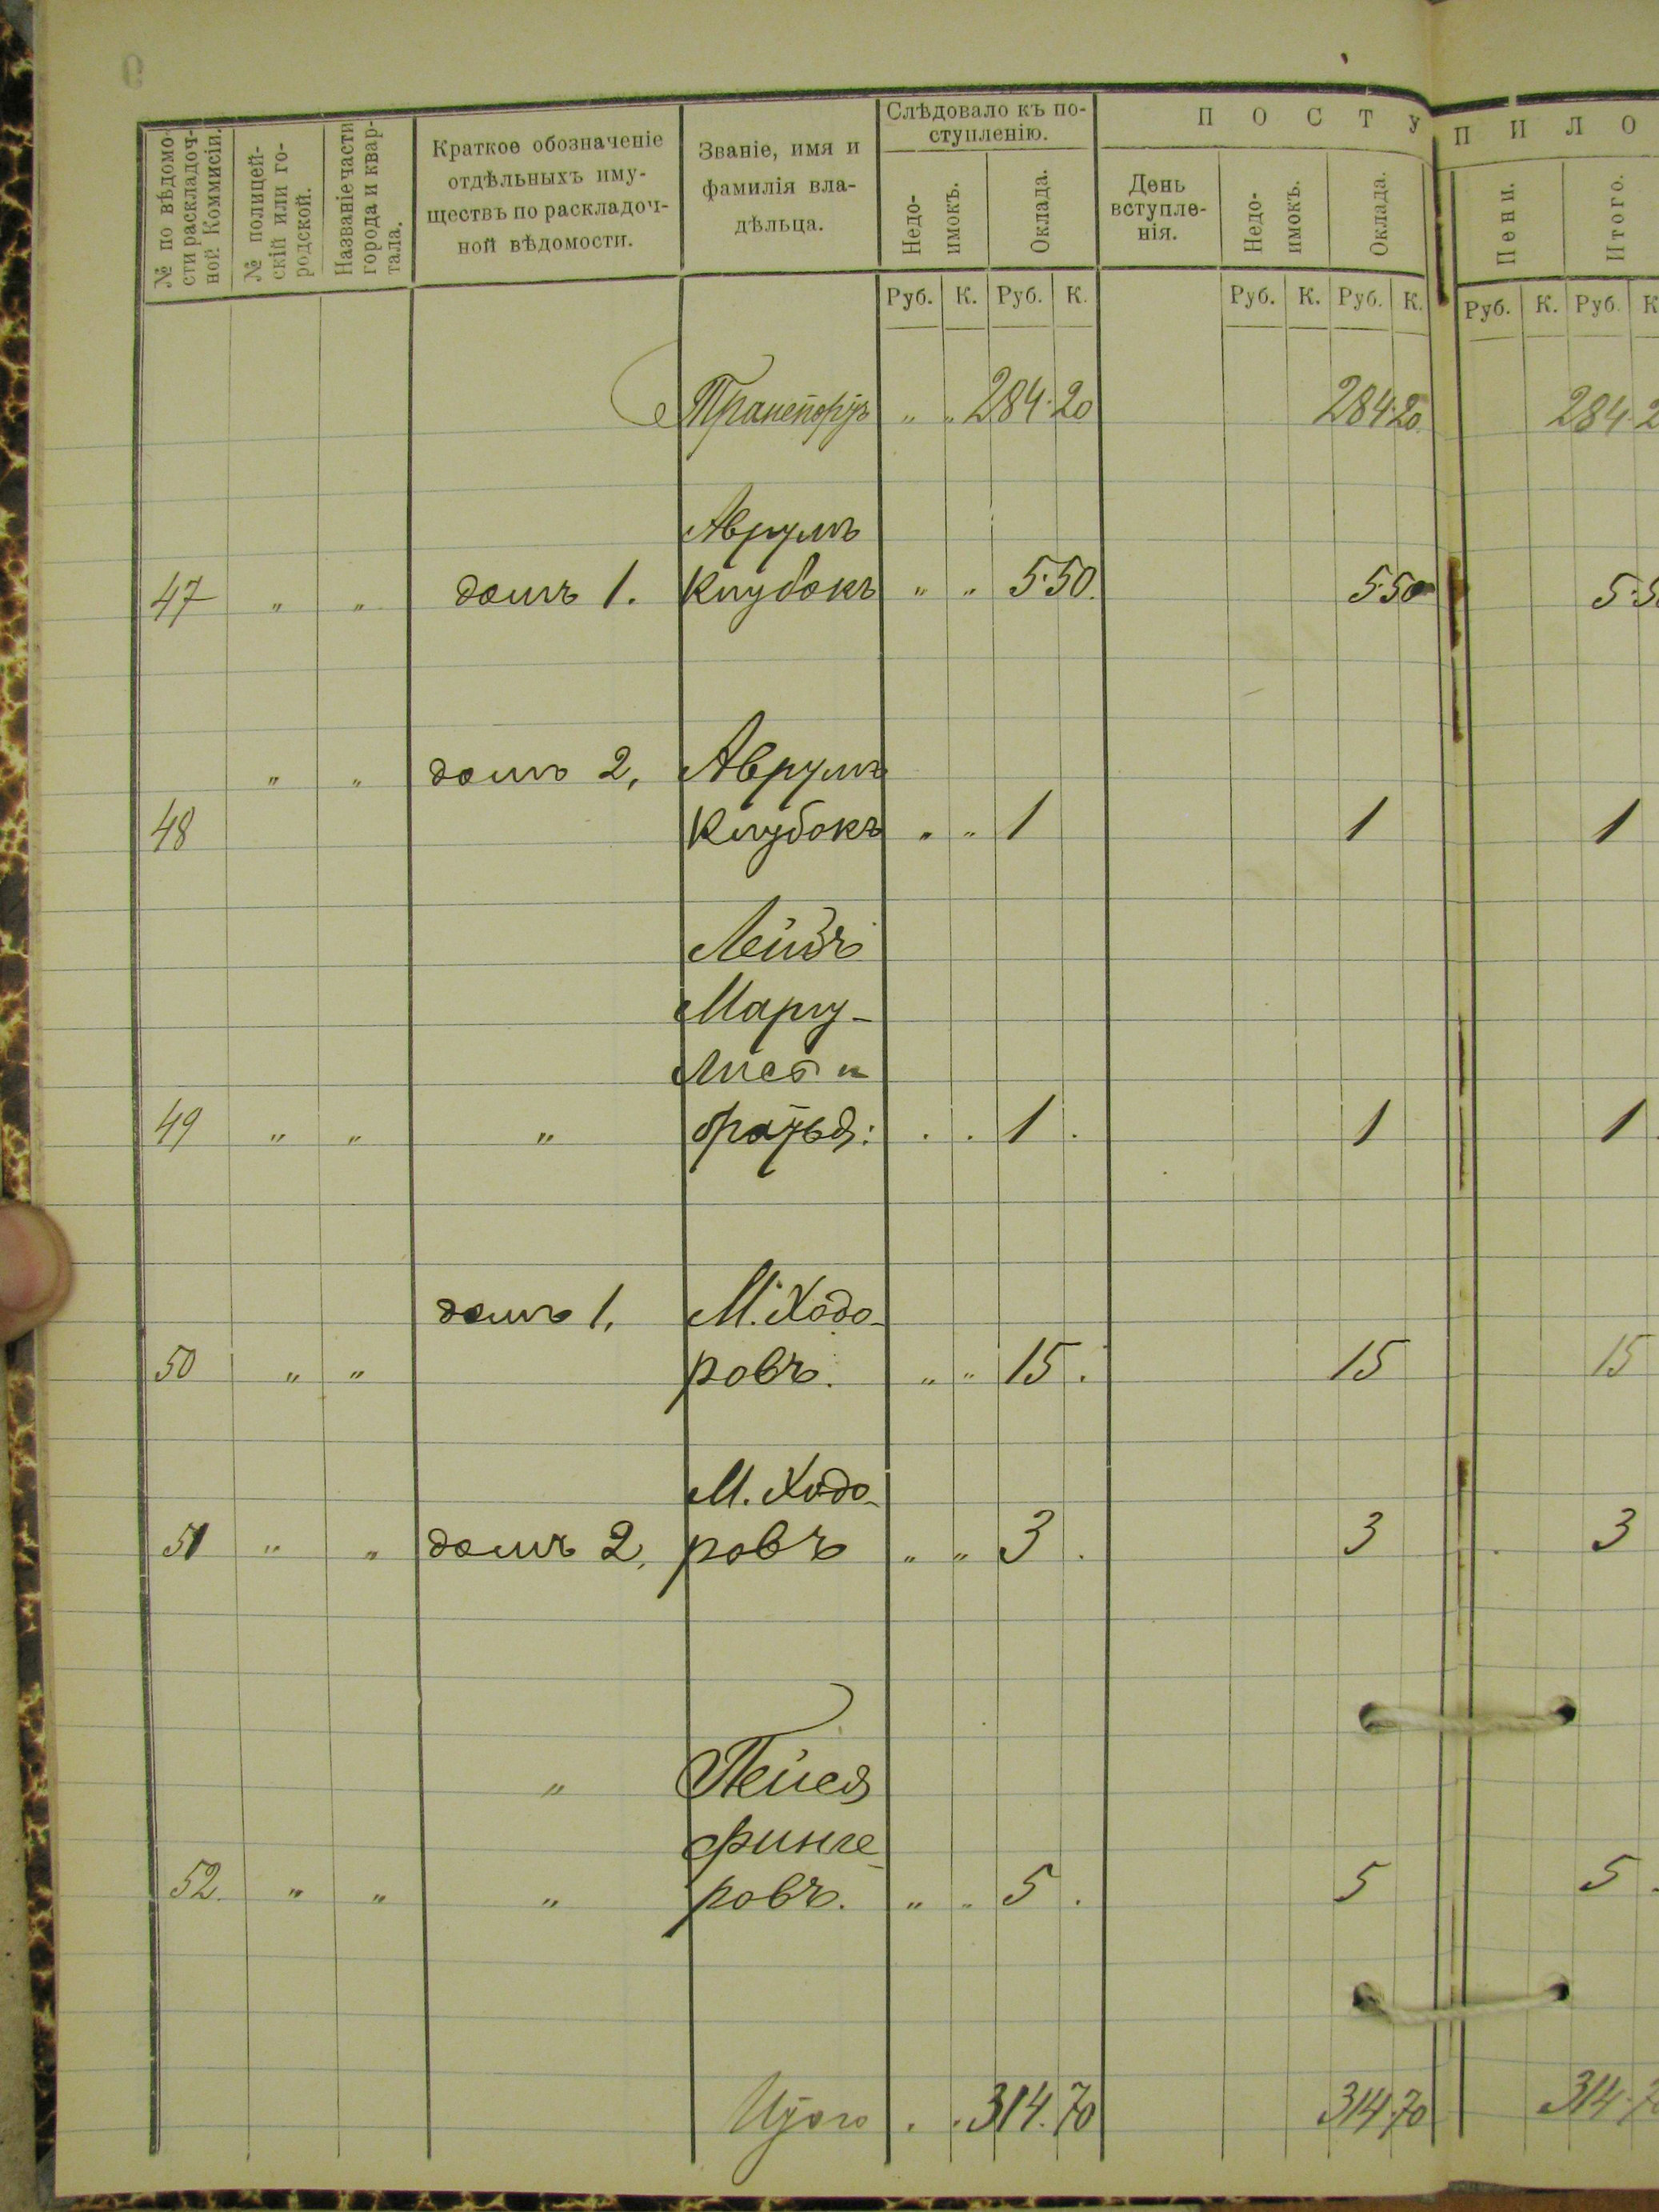 № по вѣдомо-
сти раскладоч-
ной Коммисіи.
№ полицей-
скій или го-
родской.
Названіе части
города и квар-
тала.
Краткое обозначеніе
отдѣльныхъ иму-
ществъ по раскладоч-
ной вѣдомости.
Званіе, имя и
фамилія вла-
дѣльца.
Слѣдовало къ по-
ступленію.
Недо-
имокъ.
Оклада.
П О С Т У П И Л О
День
вступле-
нія.
Недо-
имокъ.
Оклада.
Пени.
Итого.
Руб. К. Руб. К. Руб. К. Руб. К. Руб. К. Руб. К
Транспортъ " " 284.20 284.20 284.2
Аврумъ
47 " " домъ 1. Клубокъ " " 5.50. 5.50 5.5
" " домъ 2, Аврумъ
48 Клубокъ " " 1 1 1
Лейзъ
Маргу-
лисъ и
49 " " " братья: . . 1 . 1 1 .
домъ 1, М. Ходо-
50 " " ровъ. " " 15 . 15 15
М. Ходо-
51 " " домъ 2, ровъ " " 3 . 3 3
" Пейся
Финге-
52. " " " ровъ. " " 5 . 5 5 .
Итого . . 314.70 314.70 314.7